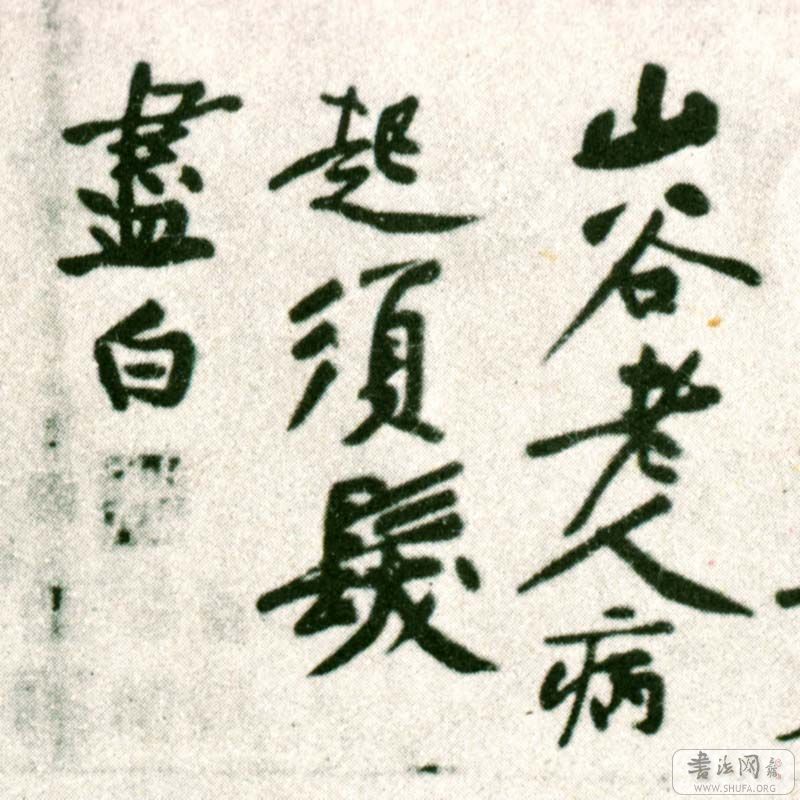 山谷老人病
起須髮
盡白
書法网
WWW.SHUFA.ORG